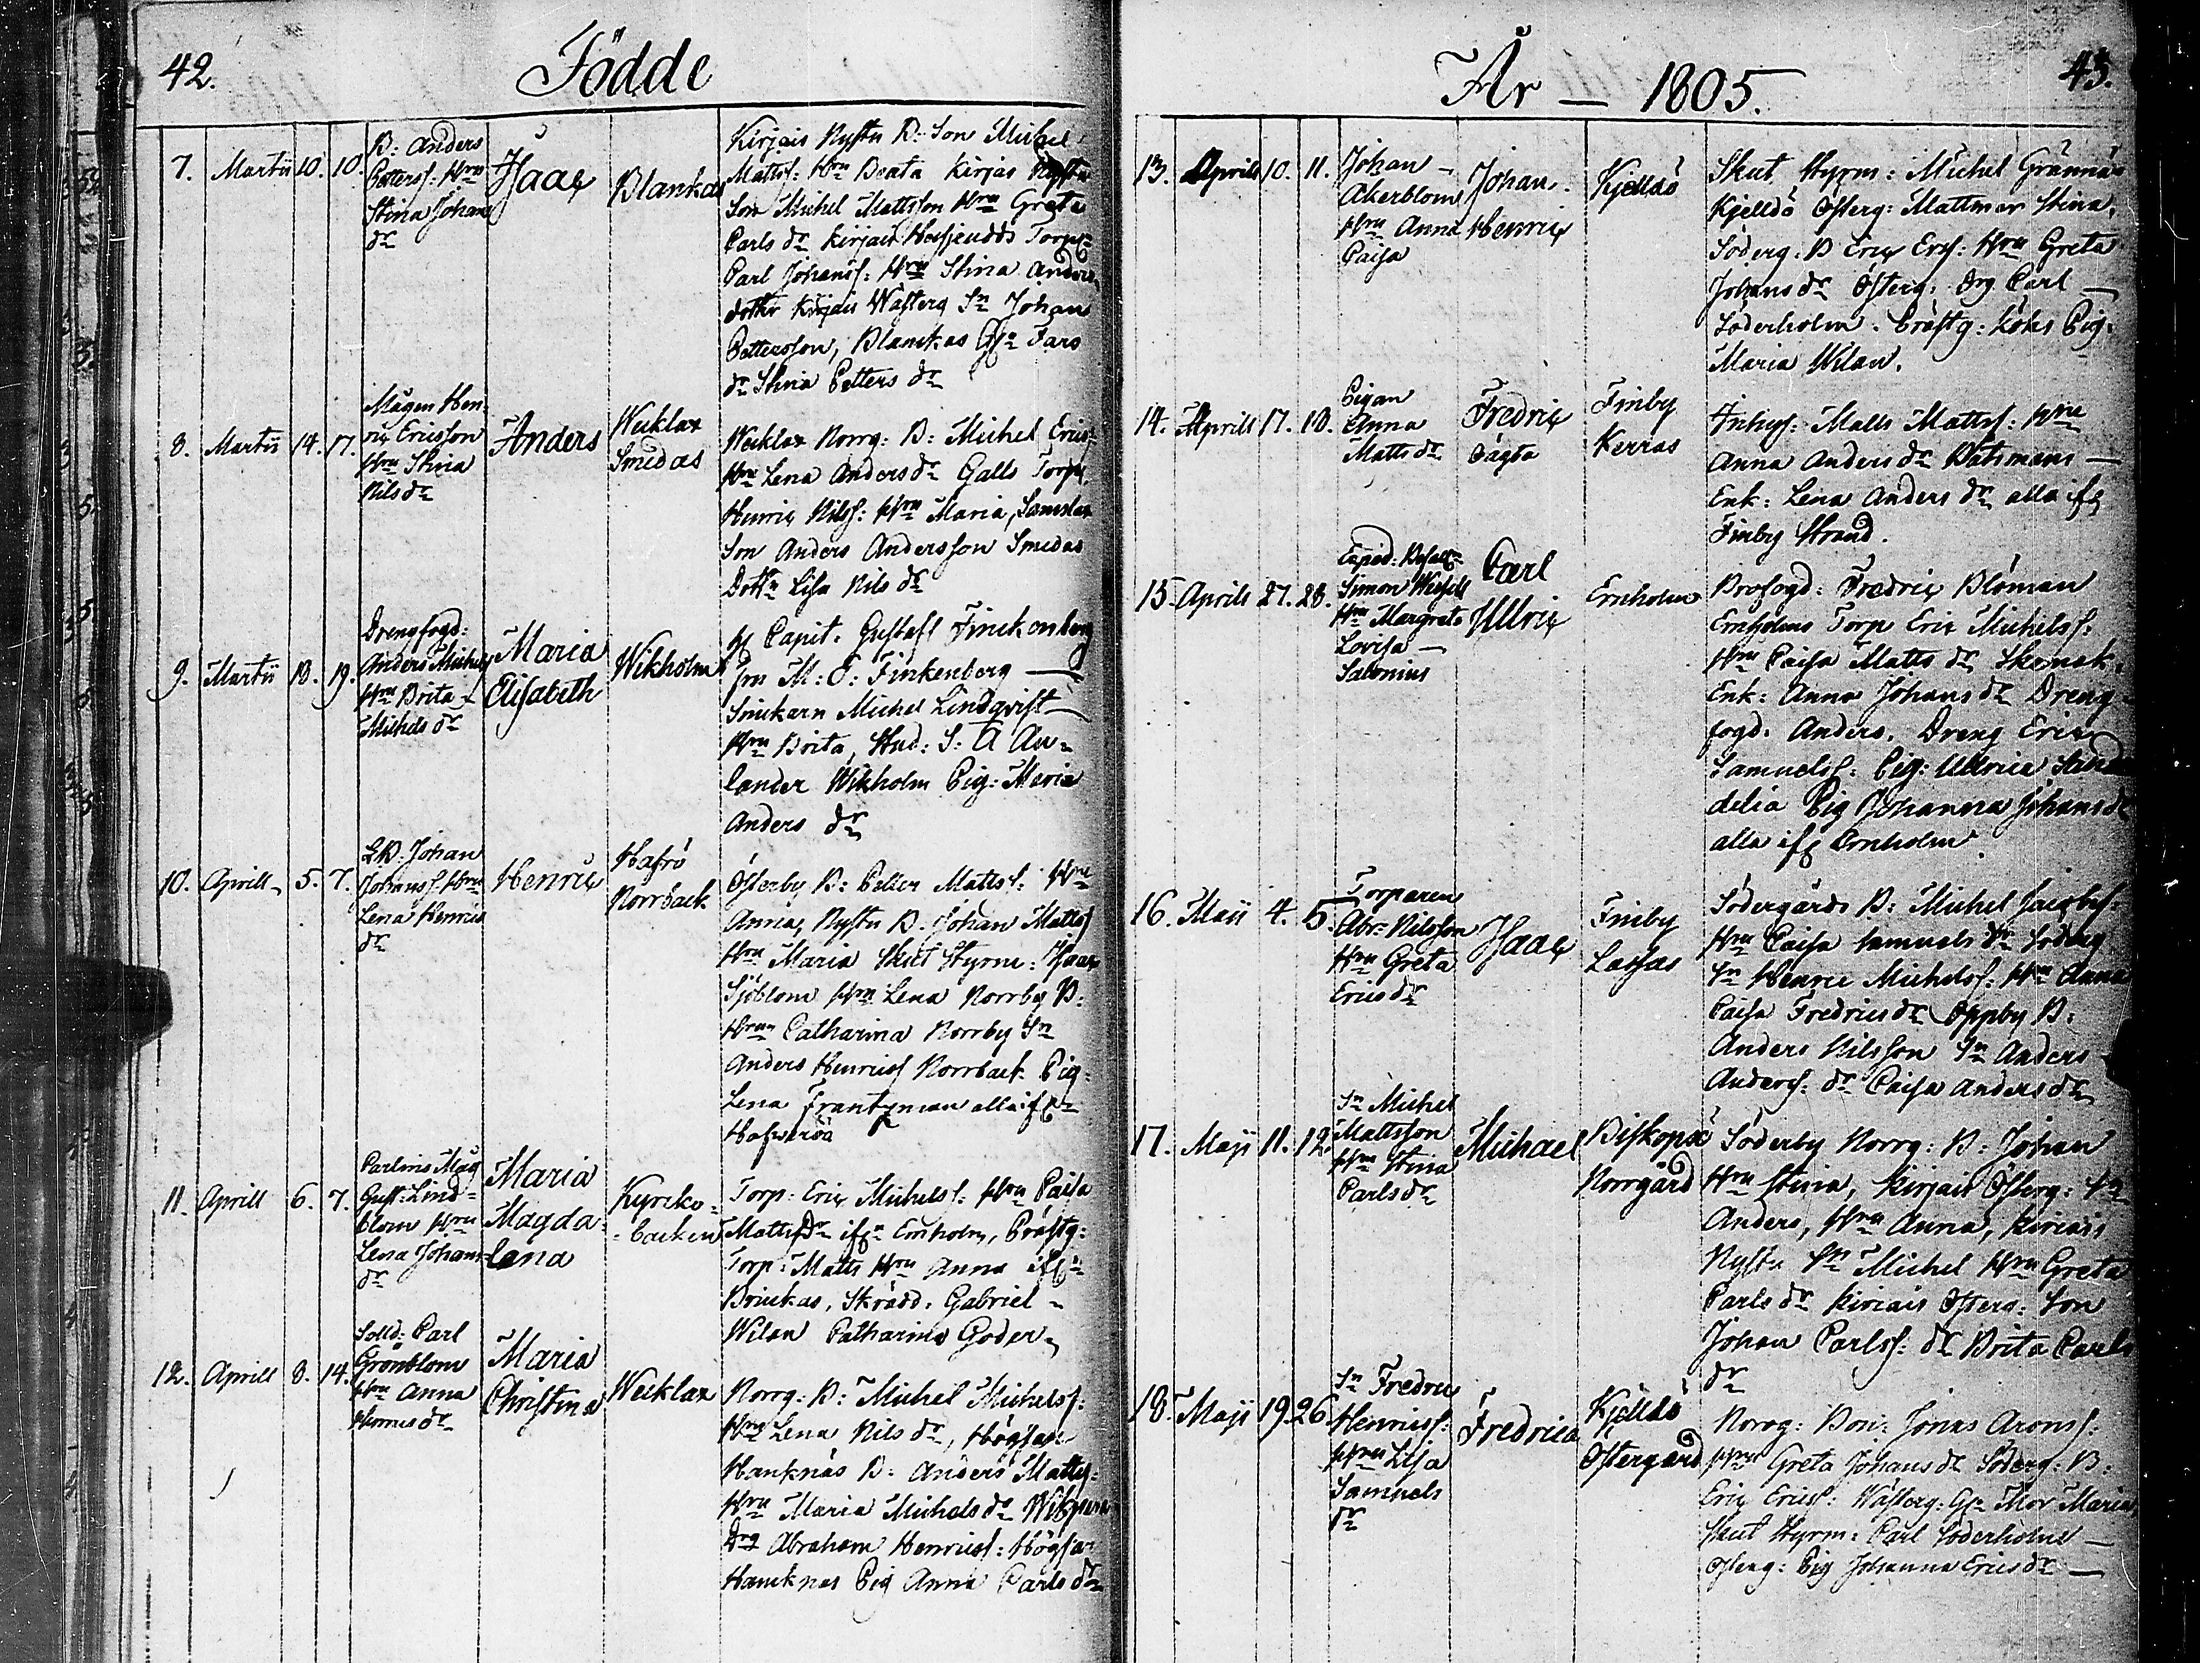 42.
Födde
7. Martii 10. 10.
B: Anders
Petterss: Hru
Stina Johans
dr
Isaac
Blankas
Kirjais Nystu B: Son Michel
Mattss: Hru Beata Kirjais Nystu
Son Michel Mattsson Hru Greta
Carls dr Kirjais Torp
Carl Johanss: Hru Stina Anders
dotter Kirjais Wästerg Sn Johan
Pettersson, Blanckas Fars
dr Stina Petters dr
8. Martii 14. 17.
Mågen Hen-
ric Ericsson
Hru Stina
Nils dr
Anders
Wecklax
Smedas
Wecklax Norrg: B: Michel Erics
Hru Lena Anders dr Galls Torp
Henric Nilss: Hru Maria,
Son Anders Andersson Smedas
Dottr Lisa Nils dr
9. Martii 18. 19.
Drengfogd:
Anders Michels
Hru Brita
Michels dr
Maria
Elisabeth
Wikholm
Capit. Gustaff Finckenberg
Fru M: C: Finkenberg —
Snickarn Michel Lindqvist
Hru Brita, Stud: S: A Au-
lander Wikholm Pig: Maria
Anders dr
10. Aprill 5. 7.
Johan
Johanss: Hru
Lena Henrics
dr
Henric
Hafrö
Norrback
Österby B: Petter Mattss: Hru
Anna, Nystu B. Johan Mattss
Hru Maria Skut Styrm: Isaac
Sjöblom Hru Lena Norrby B:
Hru Catharina Norrby Sn
Anders Henricss Norrback Pig
Lena Frantzman alla ifr
11. Aprill 6. 7.
Gust: Lind-
blom Hru
Lena Johans
dr
Maria
Magda-
lena
Kyrcko-
backen
Torp: Eric Michelss: Hru Caisa
Matts Dr ifr Ernholm, Prästg:
Torp: Matts Hru Anna ifr
Brinckas, Skrädd. Gabriel
Wilen Catharina Goder
12. Aprill 8. 14.
Solld: Carl
Grönblom
Hru Anna
Henrics dr
Maria
Christina
Wecklax
Norrg: B: Michel Michelss:
Hru Lena Nils dr, Högsar
Hanknäs B: Anders Mattss:
Hru Maria Michels dr
Drg Abraham Henricss: Högsar
Hancknäs Pig Anna Carls dr
År — 1805.
43.
13. Aprill 10. 11.
Johan —
Åkerblom
Hru Anna
Caisa
Johan
Henric
Kjelldö
Skut Styrm: Michel Grännäs
Kjelldö Österg: Stina.
Söderg: B Eric Ericss: Hru Greta
Johans dr Österg: Drg Carl —
Söderholm. Prästg: Köks Pig:
Maria Wilan.
14. Aprill 17. 18.
Pigan
Anna
Matts dr
Fredric
Oägta
Finby
Kerras
Inhys: Matts Mattss: Hru
Anna Anders dr Båtsmans —
Enk: Lena Anders dr alla ifr
Finby Strand.
15. Aprill 27. 28.
Simon
Hru Margreta
Lovisa —
Salonius
Carl
Ullric
Ernholm
Brofogd: Fredric Blöman
Ernholms Torp Eric Michelss:
Hru Caisa Matts dr Skomak:
Enk: Anna Johans dr Dreng-
fogd. Anders. Dreng Eric
Samuelss: Pig: Ullrica
delia Pig Johanna Johans dr
alla ifr Ernholm
16. Maji 4. 5.
Torparen
Abr: Nilsson
Hru Greta
Erics dr
Isaac
Finby
Lassas
Södergårds B: Michel Jacobss:
Hru Caisa Samuels dr Söderg
Sn Henric Michelss: Hru Anna
Caisa Fredrics dr Öppby B:
Anders Nilsson Sn Anders
Anderss: dr Caisa Anders dr
17. Maji 11. 12.
Sn Michel
Mattsson
Hru Stina
Carls dr
Michael
Biskopsö
Norrgård
Söderby Norrg: B: Johan
Hru Stina, Kirjais Österg: Sn
Anders, Hru Anna, Kiriais
Nystu Sn Michel Hru Greta
Carls dr Kiriais Österg: Son
Johan Carlss: dr Brita Carls
dr
18. Maji 19. 26.
Sn Fredric
Henricss:
Hru Lisa
Samuels
dr
Fredrica
Kjelldö
Östergård
Norrg: Bon: Jonas Aronss:
Hru Greta Johans dr Söderg: B:
Eric Ericss: Wästerg: Mor Maria
Skut Styrm: Carl Söderholm —
Österg: Pig Johanna Erics dr —